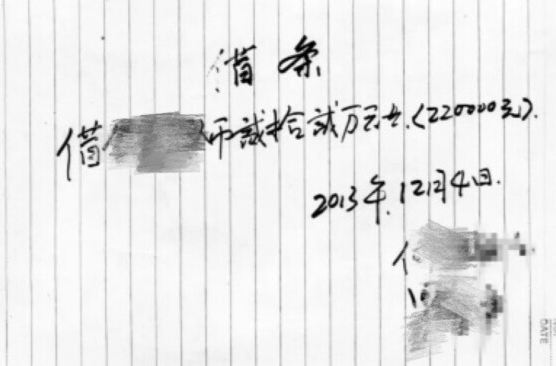 借条
借 币贰拾贰万元 (220000元).
2013年.12月4日.
DATE